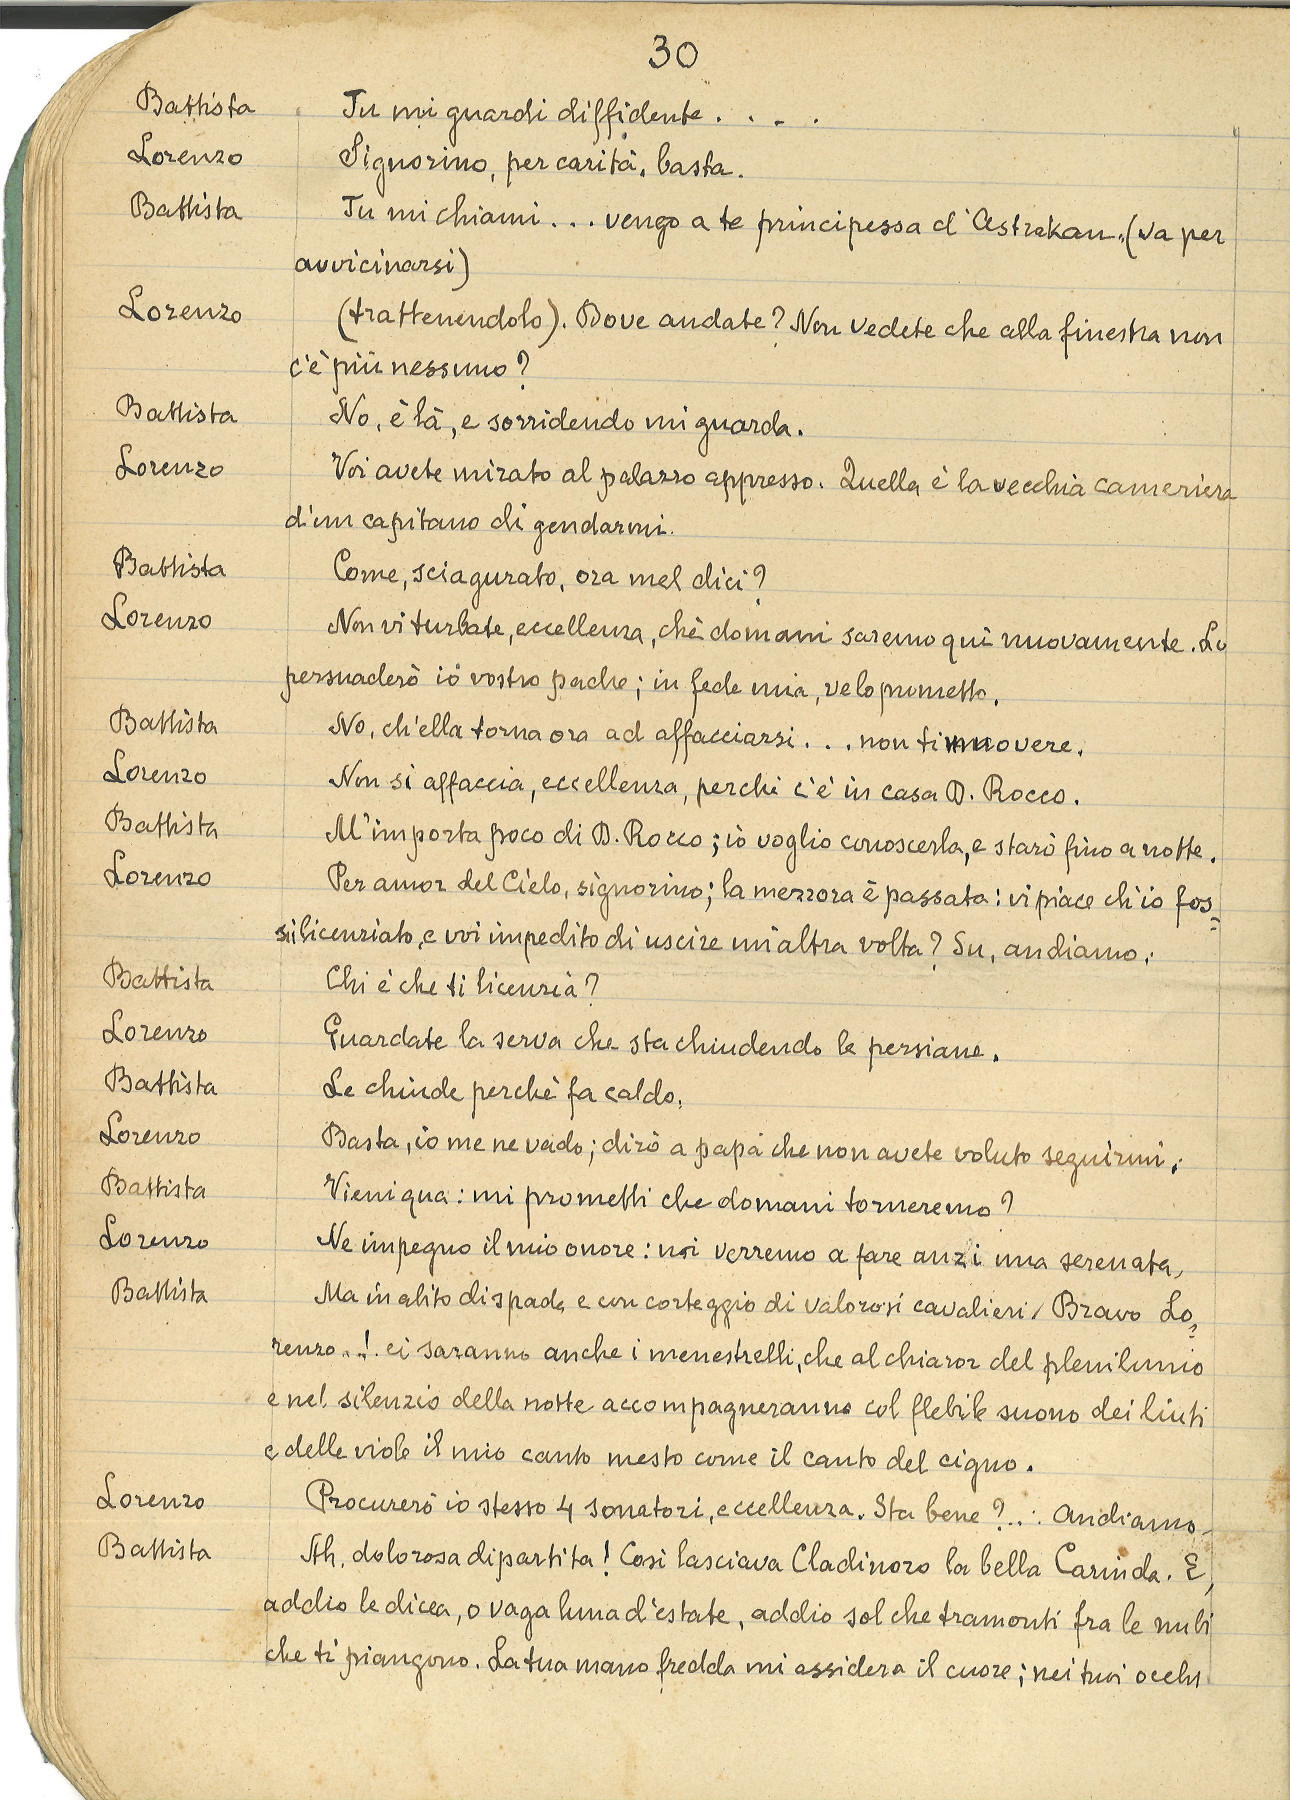 30
Battista Tu mi guardi diffidente. . . .
Lorenzo Signorino, per carità, basta.
Battista Tu mi chiami... vengo a te principessa d'Astrakan. (va per
avvicinarsi)
Lorenzo (trattenendolo). Dove andate? Non vedete che alla finestra non
c'è più nessuno?
Battista No, è là, e sorridendo mi guarda.
Lorenzo Voi avete mirato al palazzo appresso. Quella è la vecchia cameriera
d'un capitano di gendarmi.
Battista Come, sciagurato, ora mel dici?
Lorenzo Non vi turbate, eccellenza, chè domani saremo quì nuovamente. Lo
persuaderò io vostro padre; in fede mia, ve lo prometto.
Battista No, ch'ella torna ora ad affacciarsi... non ti muovere.
Lorenzo Non si affaccia, eccellenza, perchè c'è in casa D. Rocco.
Battista M'importa poco di D. Rocco; io voglio conoscerla, e starò fino a notte.
Lorenzo Per amor del Cielo, signorino; la mezzora è passata: vi piace ch'io fos=
si licenziato, e voi impedito di uscire un'altra volta? Su, andiamo.
Battista Chi è che ti licenzia?
Lorenzo Guardate la serva che sta chiudendo le persiane.
Battista Le chiude perchè fa caldo.
Lorenzo Basta, io me ne vado; dirò a papà che non avete voluto seguirmi.
Battista Vieni qua: mi prometti che domani torneremo?
Lorenzo Ne impegno il mio onore: noi verremo a fare anzi una serenata,
Battista Ma in abito di spada e con corteggio di valorosi cavalieri, Bravo Lo=
renzo..! ci saranno anche i menestrelli, che al chiaror del plenilunio
e nel silenzio della notte accompagneranno col flebile suono dei liuti
e delle viole il mio canto mesto come il canto del cigno.
Lorenzo Procurerò io stesso 4 sonatori, eccellenza. Sta bene?... Andiamo.
Battista Ah, dolorosa dipartita! Così lasciava Cladinoro la bella Carinda. E,
addio le dicea, o vaga luna d'estate, addio sol che tramonti fra le nubi
che ti piangono. La tua mano fredda mi assidera il cuore; nei tuoi occhi